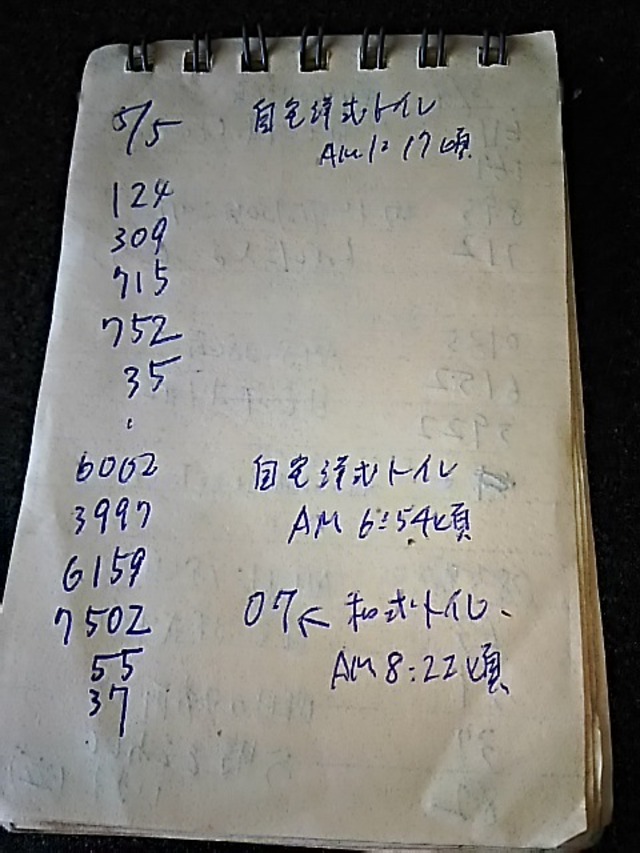 5/5 自宅洋式トイレ
AM 1:17頃
124
309
715
752
35
6062 自宅洋式トイレ
3997 AM 6:54頃
6159
7502 07← 和式トイレ、
55 AM 8:22頃
37